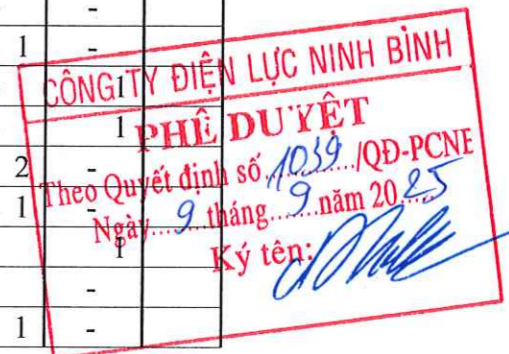 -
1 -
CÔNG TY ĐIỆN LỰC NINH BÌNH
1
PHÊ DUYỆT
1
Theo Quyết định số 1039 /QĐ-PCNE
2 -
Ngày 9 tháng 9 năm 2025
1 -
Ký tên:
1
-
1 -